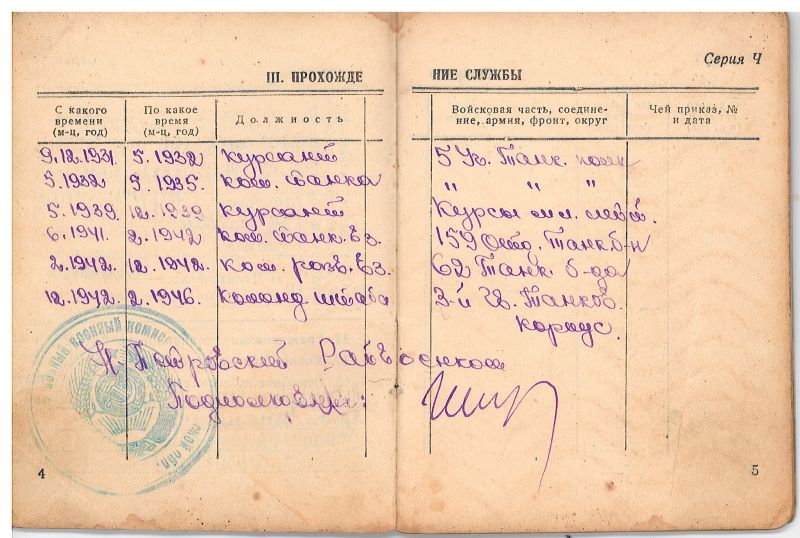 Серия Ч
III. ПРОХОЖДЕНИЕ СЛУЖБЫ
С какого времени (м-ц, год) По какое время (м-ц, год) Должность Войсковая часть, соединение, армия, фронт, округ Чей приказ, № и дата
9.12.1931 5.1932 курсант 5 Уч. Танк. полк
5.1932 5.1935. ком. танка " " "
5.1939. 12.1939 курсант Курсы мл. лейт.
6.1941. 2.1942 ком. танк. вз. 159 Отд. Танк б-н
2.1942. 12.1942. ком. разв. вз. 62 Танк. б-да
12.1942. 2.1946. команд. штаба 3-й Гв. Танков.
корпус.
Н-Петровский Райвоенком
Подполковник:
ный военный комисс
ской обл.
4
5